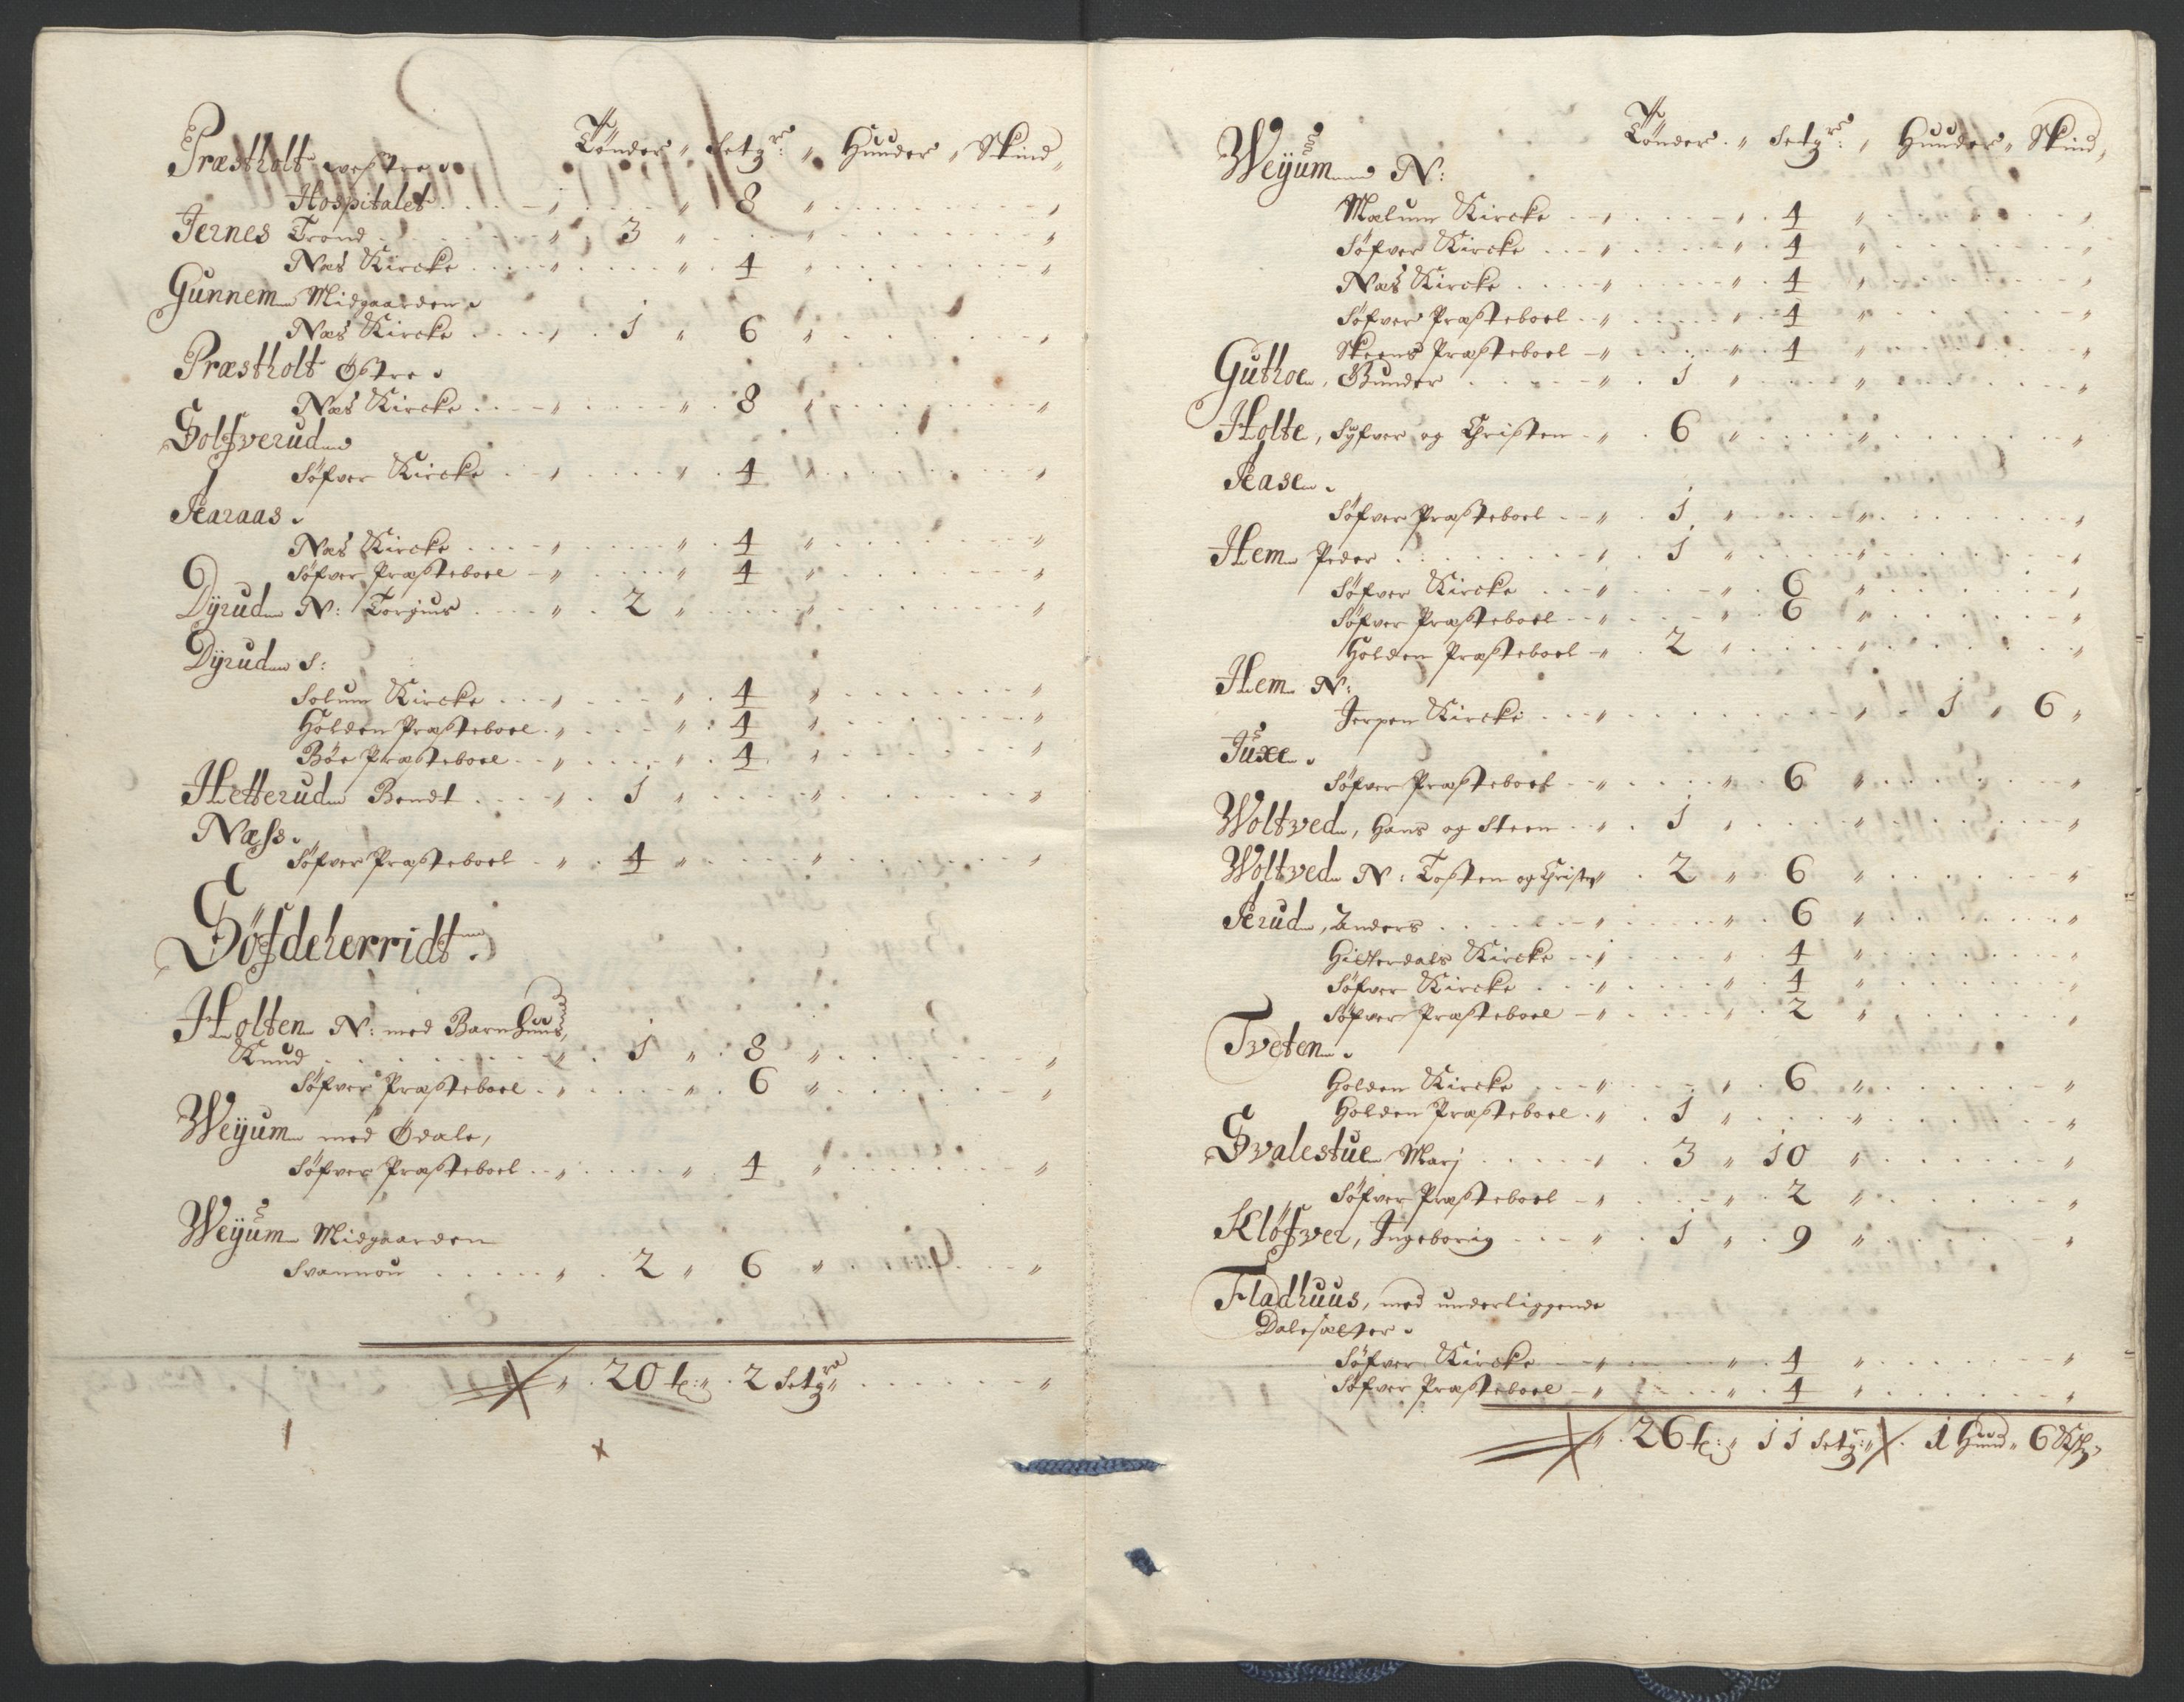 Tønder " Setgr: " Huuder " Skind "
Præstholt westre
Hospitalet " 8
Jernes Trond 3
Næs Kircke 4
Gunnem Midgaarden
Næs Kircke 1 " 6
Præstholt Østre
Næs Kircke 8
Solfverud
Søfver Kircke 4
Aaraas
Næs Kircke 4
Søfver Præsteboel 4
Dÿrud N: Torgiuus 2
Dÿrud S:
Solum Kircke 4
Holden Præsteboel 4
Bøe Præsteboel 4
Hetterud Bendt 1
Næss
Søfver Præsteboel 4
Søfdeherridt
Holten N: med Barnhuus,
Knud 1 " 8
Søfver Præsteboel 6
Weÿum med Ødale,
Søfver Præsteboel 4
Weÿum Midgaarden
Svannou 2 " 6
20 t: " 2 Setgr
Tønder " Setgr: " Huuder " Skind
Weÿum N:
Mælum Kircke 4
Søfver Kircke 4
Næs Kircke 4
Søfver Præsteboel 4
Skeens Præsteboel 4
Guthoe, Gunder 1
Holte, Syfver og Christen 6
Aase
Søfver Præsteboel 1
Hem Peder 1
Søfver Kircke 6
Søfver Præsteboel 6
Holden Præsteboel 2
Hem N:
Jerpen Kircke 1 " 6
Juxe
Søfver Præsteboel 6
Woltved, Hans og Steen 1
Woltved N: Tosten og Christen 2 " 6
Aerud, Anders 6
Hitterdals Kircke 4
Søfver Kircke 4
Søfver Præsteboel 2
Tveten
Holden Kircke 6
Holden Præsteboel 1
Svalestue Marj 3 " 10
Søfver Præsteboel 2
Kløfver, Ingeborrig 1 " 9
Fladhuus, med underliggende
Dalesætter
Søfver Kircke 4
Søfver Præsteboel 4
26 t: " 11 Setgr: 1 Huud " 6 Sk: